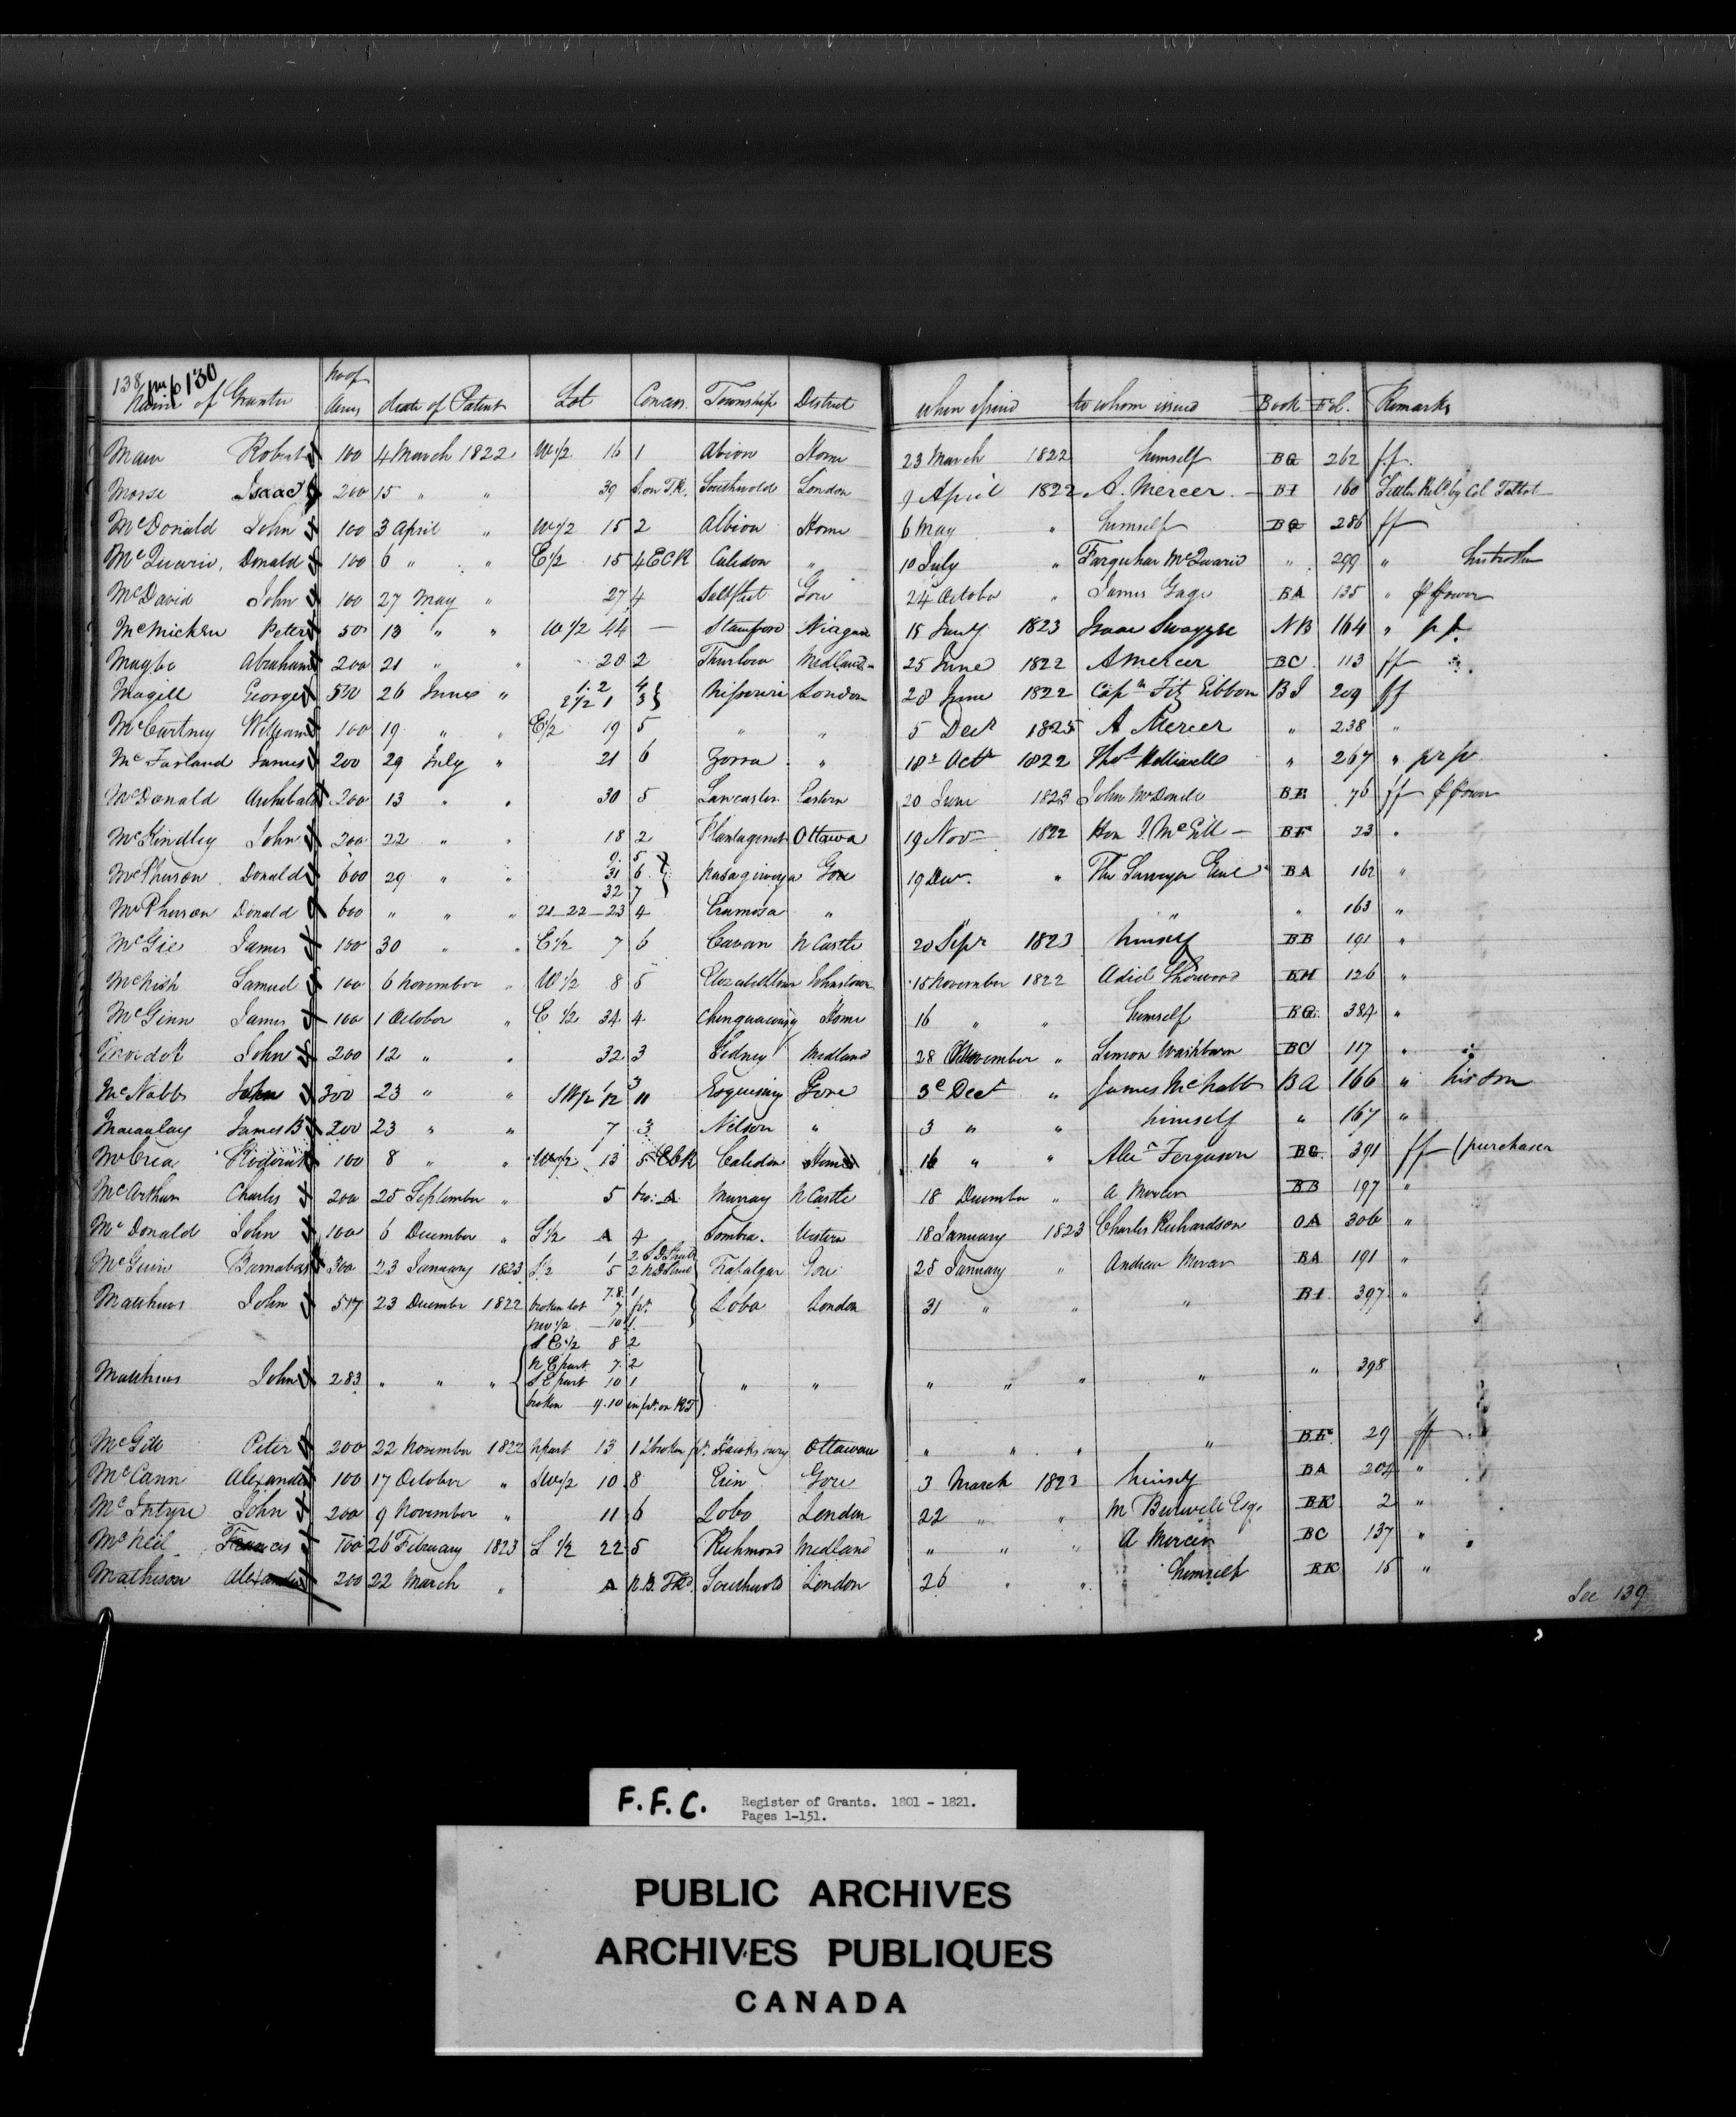 138 130
Name of Grantee No of Acres date of Patent Lot Concess. Township District when issued to whom issued Book Fol. Remarks
Maw Robert 100 4 March 1822 W 1/2 16 1 Abion Home 23 March 1822 himself BG 262 ff.
Morse Isaac 200 15 " " 39 S. on T.R. Southwold London 9 April 1822 A. Mercer BI 160 by Col Talbot
McDonald John 100 3 April " W 1/2 15 2 Albion Home 6 May " himself BG 286 ff
McQuarie, Donald 100 6 " " E 1/2 15 4 ECR Caledon " 10 July " Farquhar McQuarie " 299 " his brother
McDavid John 100 27 May " 27 4 Saltfleet Gore 24 October " James Gage BA 135 "
McMicken Peter 50 13 " " W 1/2 44 — Stamford Niagara 15 Jany 1823 Isaac Swayzee NB 164 "
Maybe Abraham 200 21 " " 20 2 Thurlow Midland 25 June 1822 A Mercer BC 113 ff
Magill George 500 26 June " 1. 2 4
1 3 Nissouri London 28 June 1822 Capn Fitz Gibbon BI 209 ff
McCartney William 100 19 " " E 1/2 19 5 " " 5 Decr 1825 A Mercer " 238 "
McFarland James 200 29 July " 21 6 Zorra " 18 Octr 1822 Thos " 267 "
McDonald Archibald 200 13 " " 30 5 Lancaster Eastern 20 June 1823 John McDonell BE 76 ff
McKindley John 200 22 " " 18 2 Plantagenet Ottawa 19 Nov 1822 Hon J. McGill — BF 23 "
9. 5
McPherson Donald 600 29 " " 31 6 Nasagiweya Gore 19 Decr. " The Surveyor Genl BA 162 "
32 7
McPherson Donald 600 " " " 21-22-23 4 Eramosa " " " 163 "
McGie James 100 30 " " E 1/2 7 6 Cavan N Castle 20 Sepr 1823 himself BB 191 "
McNish Samuel 100 6 November " W 1/2 8 5 Elizabethtown Johnstown 15 November 1822 Adiel Sherwood BH 126 "
McGinn James 100 1 October " E 1/2 34 4 Chinguacousy Home 16 " " himself BG 384 "
John 200 12 " " 32 3 Sidney Midland 28 November " Simon Washburn BC 117 "
McNabb John 300 23 " " SW 1/2 12 3 11 Esquesing Gore 3d Decr " James McNabb BA 166 " his son
Macaulay James B 200 23 " " 7 3 Nelson " 3 " " himself " 167 "
McCrea Roderick 100 8 " " W 1/2 13 5 ECR Caledon Home 16 " " Alexr Ferguson BG 391 ff (purchaser
McArthur Charles 200 25 September " 5 bro: A Murray N Castle 18 December " A Mercer BB 197 "
McDonald John 100 6 December " S 1/2 A 4 Sombra Western 18 January 1823 Charles Richardson OA 306 "
McGuin Barnabas 300 23 January 1823 1 2 S D Street
S 1/2 5 2 N D Street Trafalgar Gore 25 January " Andrew Mercer BA 191 "
7.8. 1
Matthews John 517 23 December 1822 broken lot 7 fr. Lobo London 31 " " " BI 397 "
NW 1/2 10 1
S E 1/2 8 2
N E part 7 2
Matthews John 283 " " " S E part 10 1 " " " " " " " 398
broken 9.10 in fr. on RT
McGill Peter 200 22 November 1822 N part 13 1 & broken fr. Hawksbury Ottawa " " " " BF 29 ff
McCann Alexander 100 17 October " SW 1/2 10 8 Erin Gore 3 March 1823 himself BA 204 "
McIntyre John 200 9 November " 11 6 Lobo London 22 " " M Burwell Esq. BK 2 "
McNeil Francis 100 26 February 1823 S 1/2 22 5 Richmond Midland " " " A Mercer BC 137 "
Mathison Alexander 200 22 March " A N.B. TRd. Southwold London 26 " " himself BK 15 "
See 139
F.F.C. Register of Grants. 1801 - 1821.
Pages 1-151.
PUBLIC ARCHIVES
ARCHIVES PUBLIQUES
CANADA